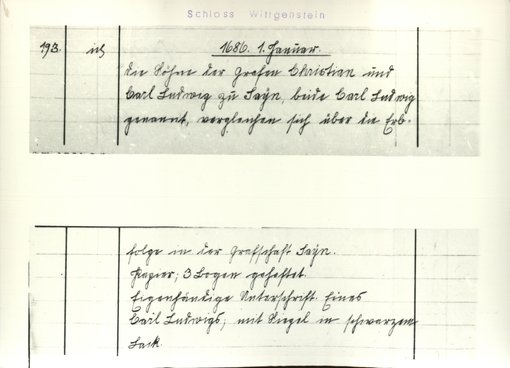 Schloss Wittgenstein
193. ich 1686. 1. Januar.
Die Söhne der Grafen Christian und
Carl Ludwig zu Sayn, beide Carl Ludwig
genannt, vergleichen sich über die Erb-
folge in der Grafschaft Sayn.
Papier; 3 Bogen geheftet.
Eigenhändige Unterschrift Eines
Carl Ludwigs; mit Siegel in schwarzem
Lack.